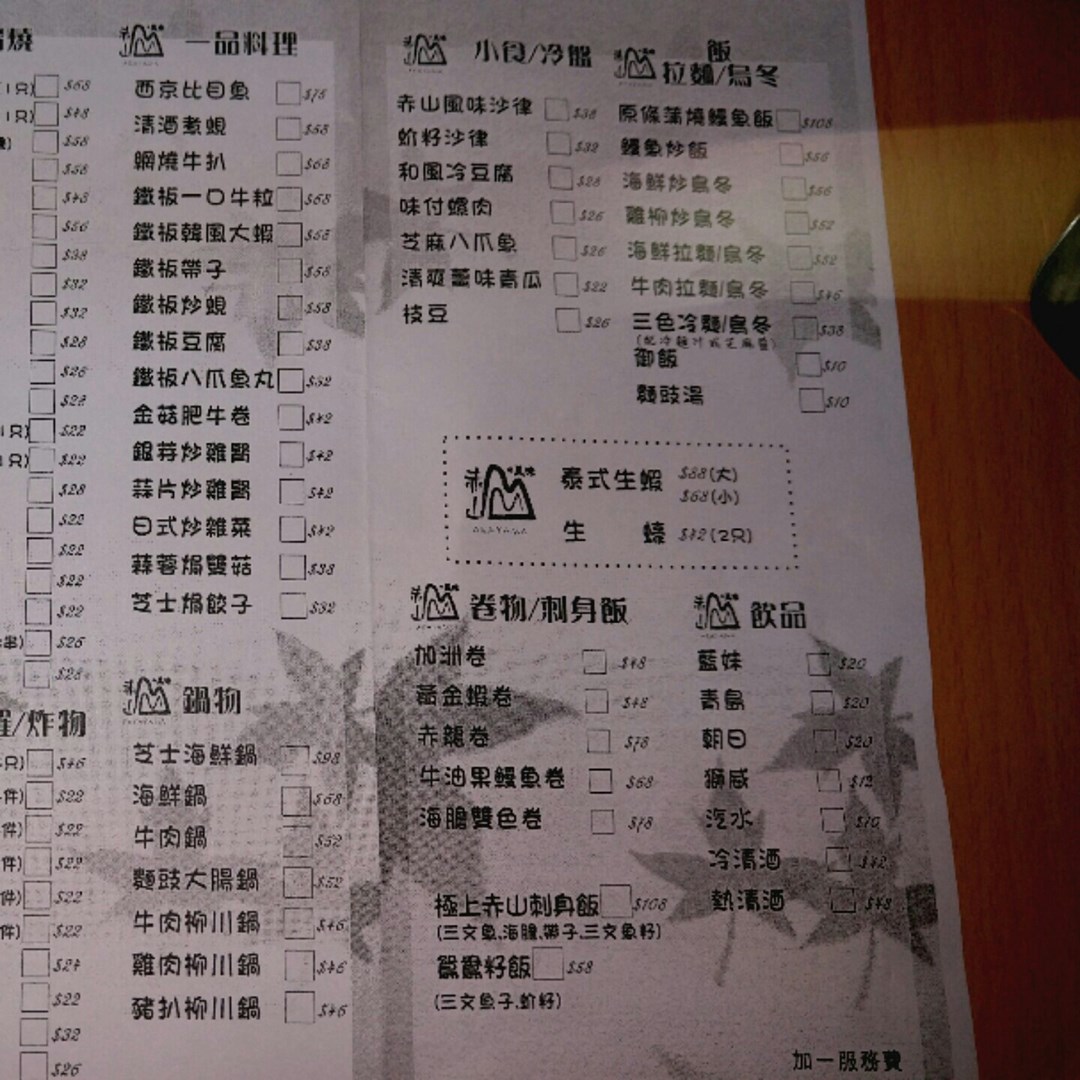 燒
1只) $68
1只) $48
$58
$58
$48
$56
$38
$32
$32
$28
$26
$28
1只) $22
只) $22
$28
$22
$22
$22
$22
串) $26
$28
/炸物
只) $46
件) $22
件) $22
件) $22
件) $22
件) $22
$24
$22
$32
$26
一品料理
西京比目魚 $78
清酒煮蜆 $58
網燒牛扒 $68
鐵板一口牛粒 $68
鐵板韓風大蝦 $68
鐵板帶子 $58
鐵板炒蜆 $58
鐵板豆腐 $38
鐵板八爪魚丸 $32
金菇肥牛卷 $42
銀芽炒雞腎 $42
蒜片炒雞腎 $42
日式炒雜菜 $42
蒜蓉焗雙菇 $38
芝士焗餃子 $32
鍋物
芝士海鮮鍋 $98
海鮮鍋 $68
牛肉鍋 $52
麵豉大腸鍋 $52
牛肉柳川鍋 $46
雞肉柳川鍋 $46
豬扒柳川鍋 $46
小食/冷盤
赤山風味沙律 $38
蚧籽沙律 $32
和風冷豆腐 $28
味付螺肉 $26
芝麻八爪魚 $26
清爽薑味青瓜 $22
枝豆 $26
飯
拉麵/烏冬
原條蒲燒鰻魚飯 $108
鰻魚炒飯 $56
海鮮炒烏冬 $56
雞柳炒烏冬 $52
海鮮拉麵/烏冬 $52
牛肉拉麵/烏冬 $46
三色冷麵/烏冬 $38
(配冷麵汁或芝麻醬)
御飯 $10
麵豉湯 $10
赤山風味
AKAYAMA
泰式生蝦 $88(大)
$68(小)
生蠔 $42(2只)
卷物/刺身飯
加洲卷 $48
黃金蝦卷 $48
赤龍卷 $78
牛油果鰻魚卷 $68
海膽雙色卷 $78
極上赤山刺身飯 $108
(三文魚.海膽.帶子.三文魚籽)
鴛鴦籽飯 $58
(三文魚子.蚧籽)
飲品
藍妹 $20
青島 $20
朝日 $20
獅威 $12
汽水 $10
冷清酒 $42
熱清酒 $48
加一服務費